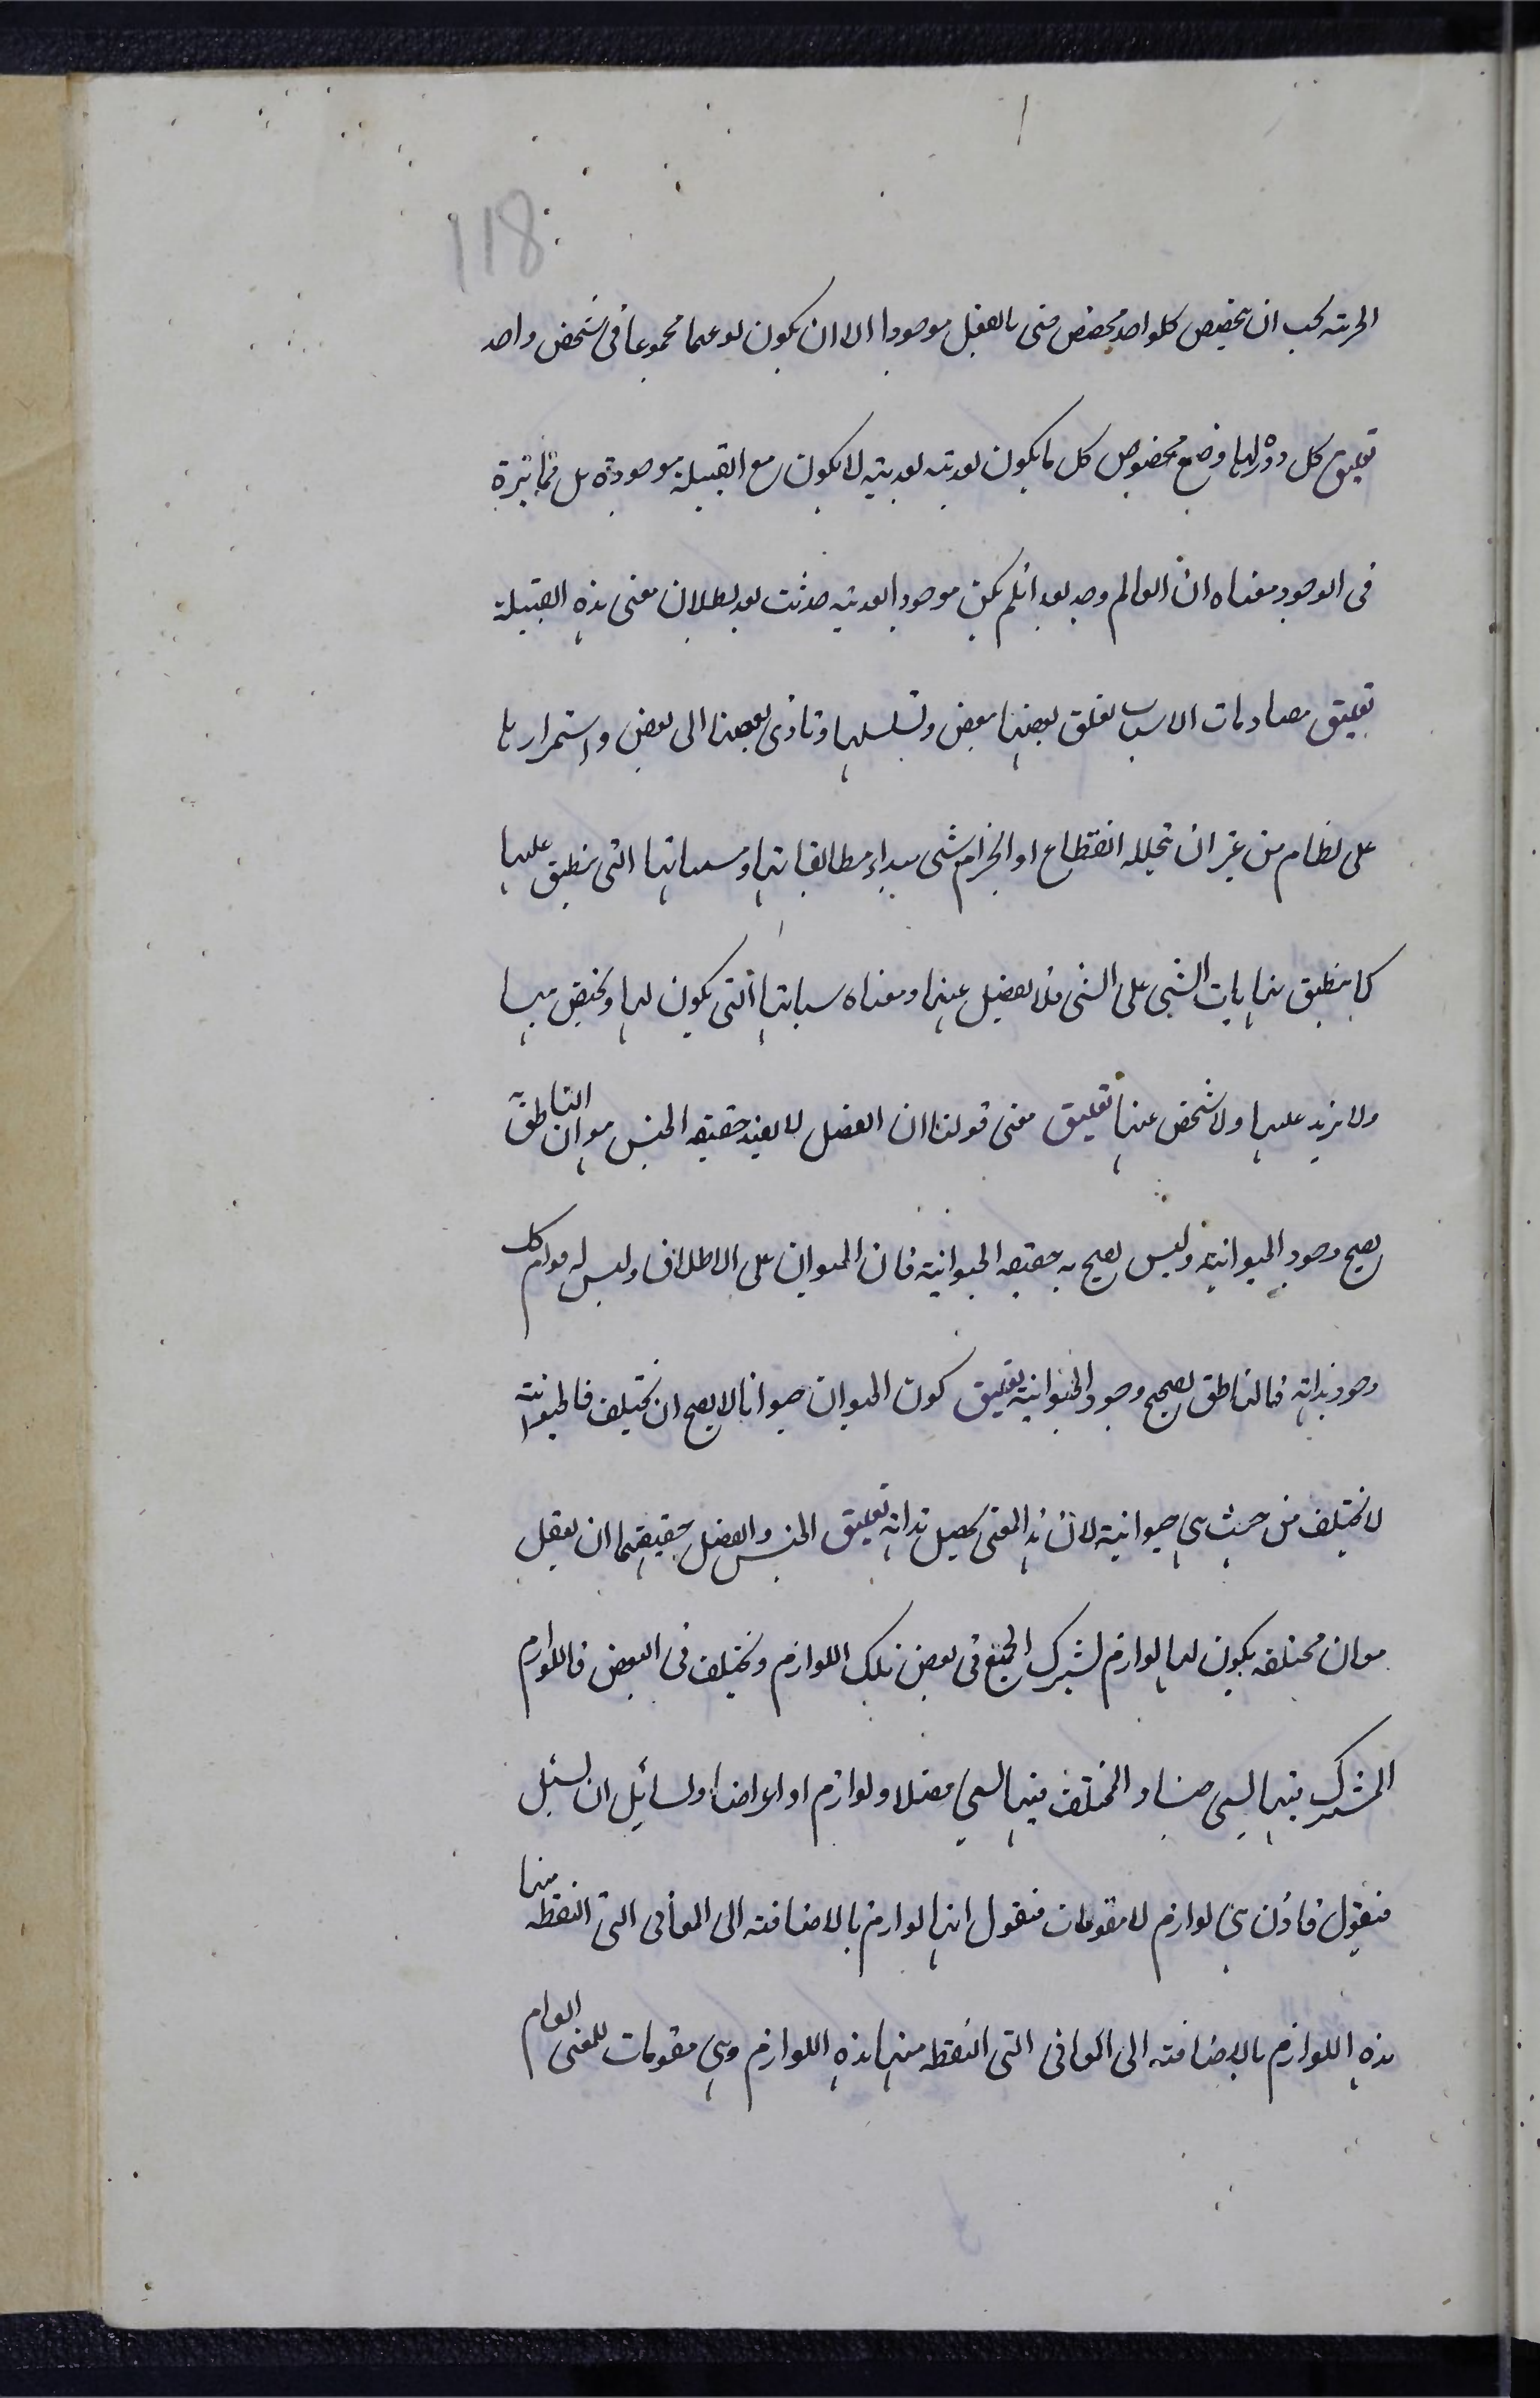 118
الحرية يجب ان يخصص كلواحد مخصص فى بالفعل موجودا الا ان يكون نوعها مجموعا فى شخص واحد
تعليق كل دورة لها وضع مخصوص كل ما يكون بعديته بعدية لا يكون مع القبلية موجودة بل متمايزة
فى الوجود معناه ان العالم وجد بعد انلم يكن موجودا بعدية حدثت بعد بطلان معنى هذه القبلية
تعليق مصادمات الاسباب تعلق بعضها ببعض وتسلسلها وتأدى بعضها الى بعض واستمرارها
على نظام من غير ان يتخلله انقطاع او انخرام شى مطابقاتها ومسبباتها التى ينطبق عليها
كما ينطبق نهايات الشى على الشى فلا يفضل عنها ومعناه مسبباتها التى يكون لها ويختص بها
ولا يزيد عليها ولا شخص عنها تعليق معنى قولنا ان الفصل لا يفيد حقيقه الجنس هو ان الناطق
يصح وجود الحيوانية وليس يصح به حقيقه الحيوانية فان الحيوان على الاطلاق وليس له قوام كل
وجود بذاته فالناطق يصحح وجود الحيوانية تعليق كون الحيوان حيوانا لا يصح ان يختلف فالحيوانية
لا يختلف من حيث هى حيوانية لان هذا المعنى يحصل بذاته تعليق الجنس والفصل حقيقتهما ان يعقل
معان مختلفه يكون لها لوازم يشترك الجميع فى بعض تلك اللوازم ويختلف فى البعض فاللوازم
المشترك فيها يسمى جنسا والمختلف فيها يسمى فصلا ولوازم او اعراضا ولسائل ان يسئل
فيقول فاذن هى لوازم لا مقومات فنقول انها لوازم بالاضافته الى المعانى التى التقطه منها
هذه اللوازم بالاضافته الى المعانى التى التقطه منها هذه اللوازم وهى مقومات للمعنى العام